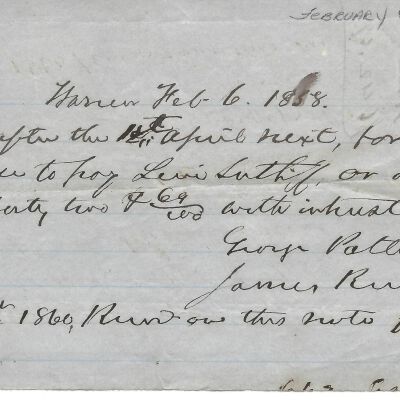 FEBRUARY
Warren Feb. 6. 1858.
after the 1st April next, for
to pay Levi Sutliff, or
forty two & 69/100 with interest
George
James
1860, Recd on this note